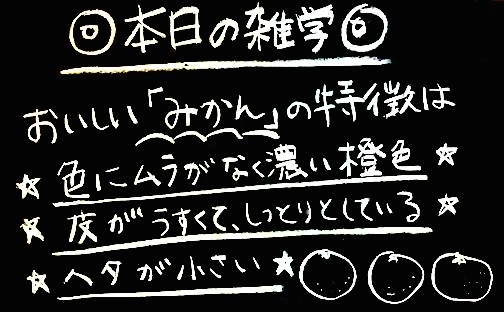 ◎本日の雑学◎
おいしい「みかん」の特徴は
☆色にムラがなく濃い橙色☆
☆皮がうすくて、しっとりとしている☆
☆ヘタが小さい☆